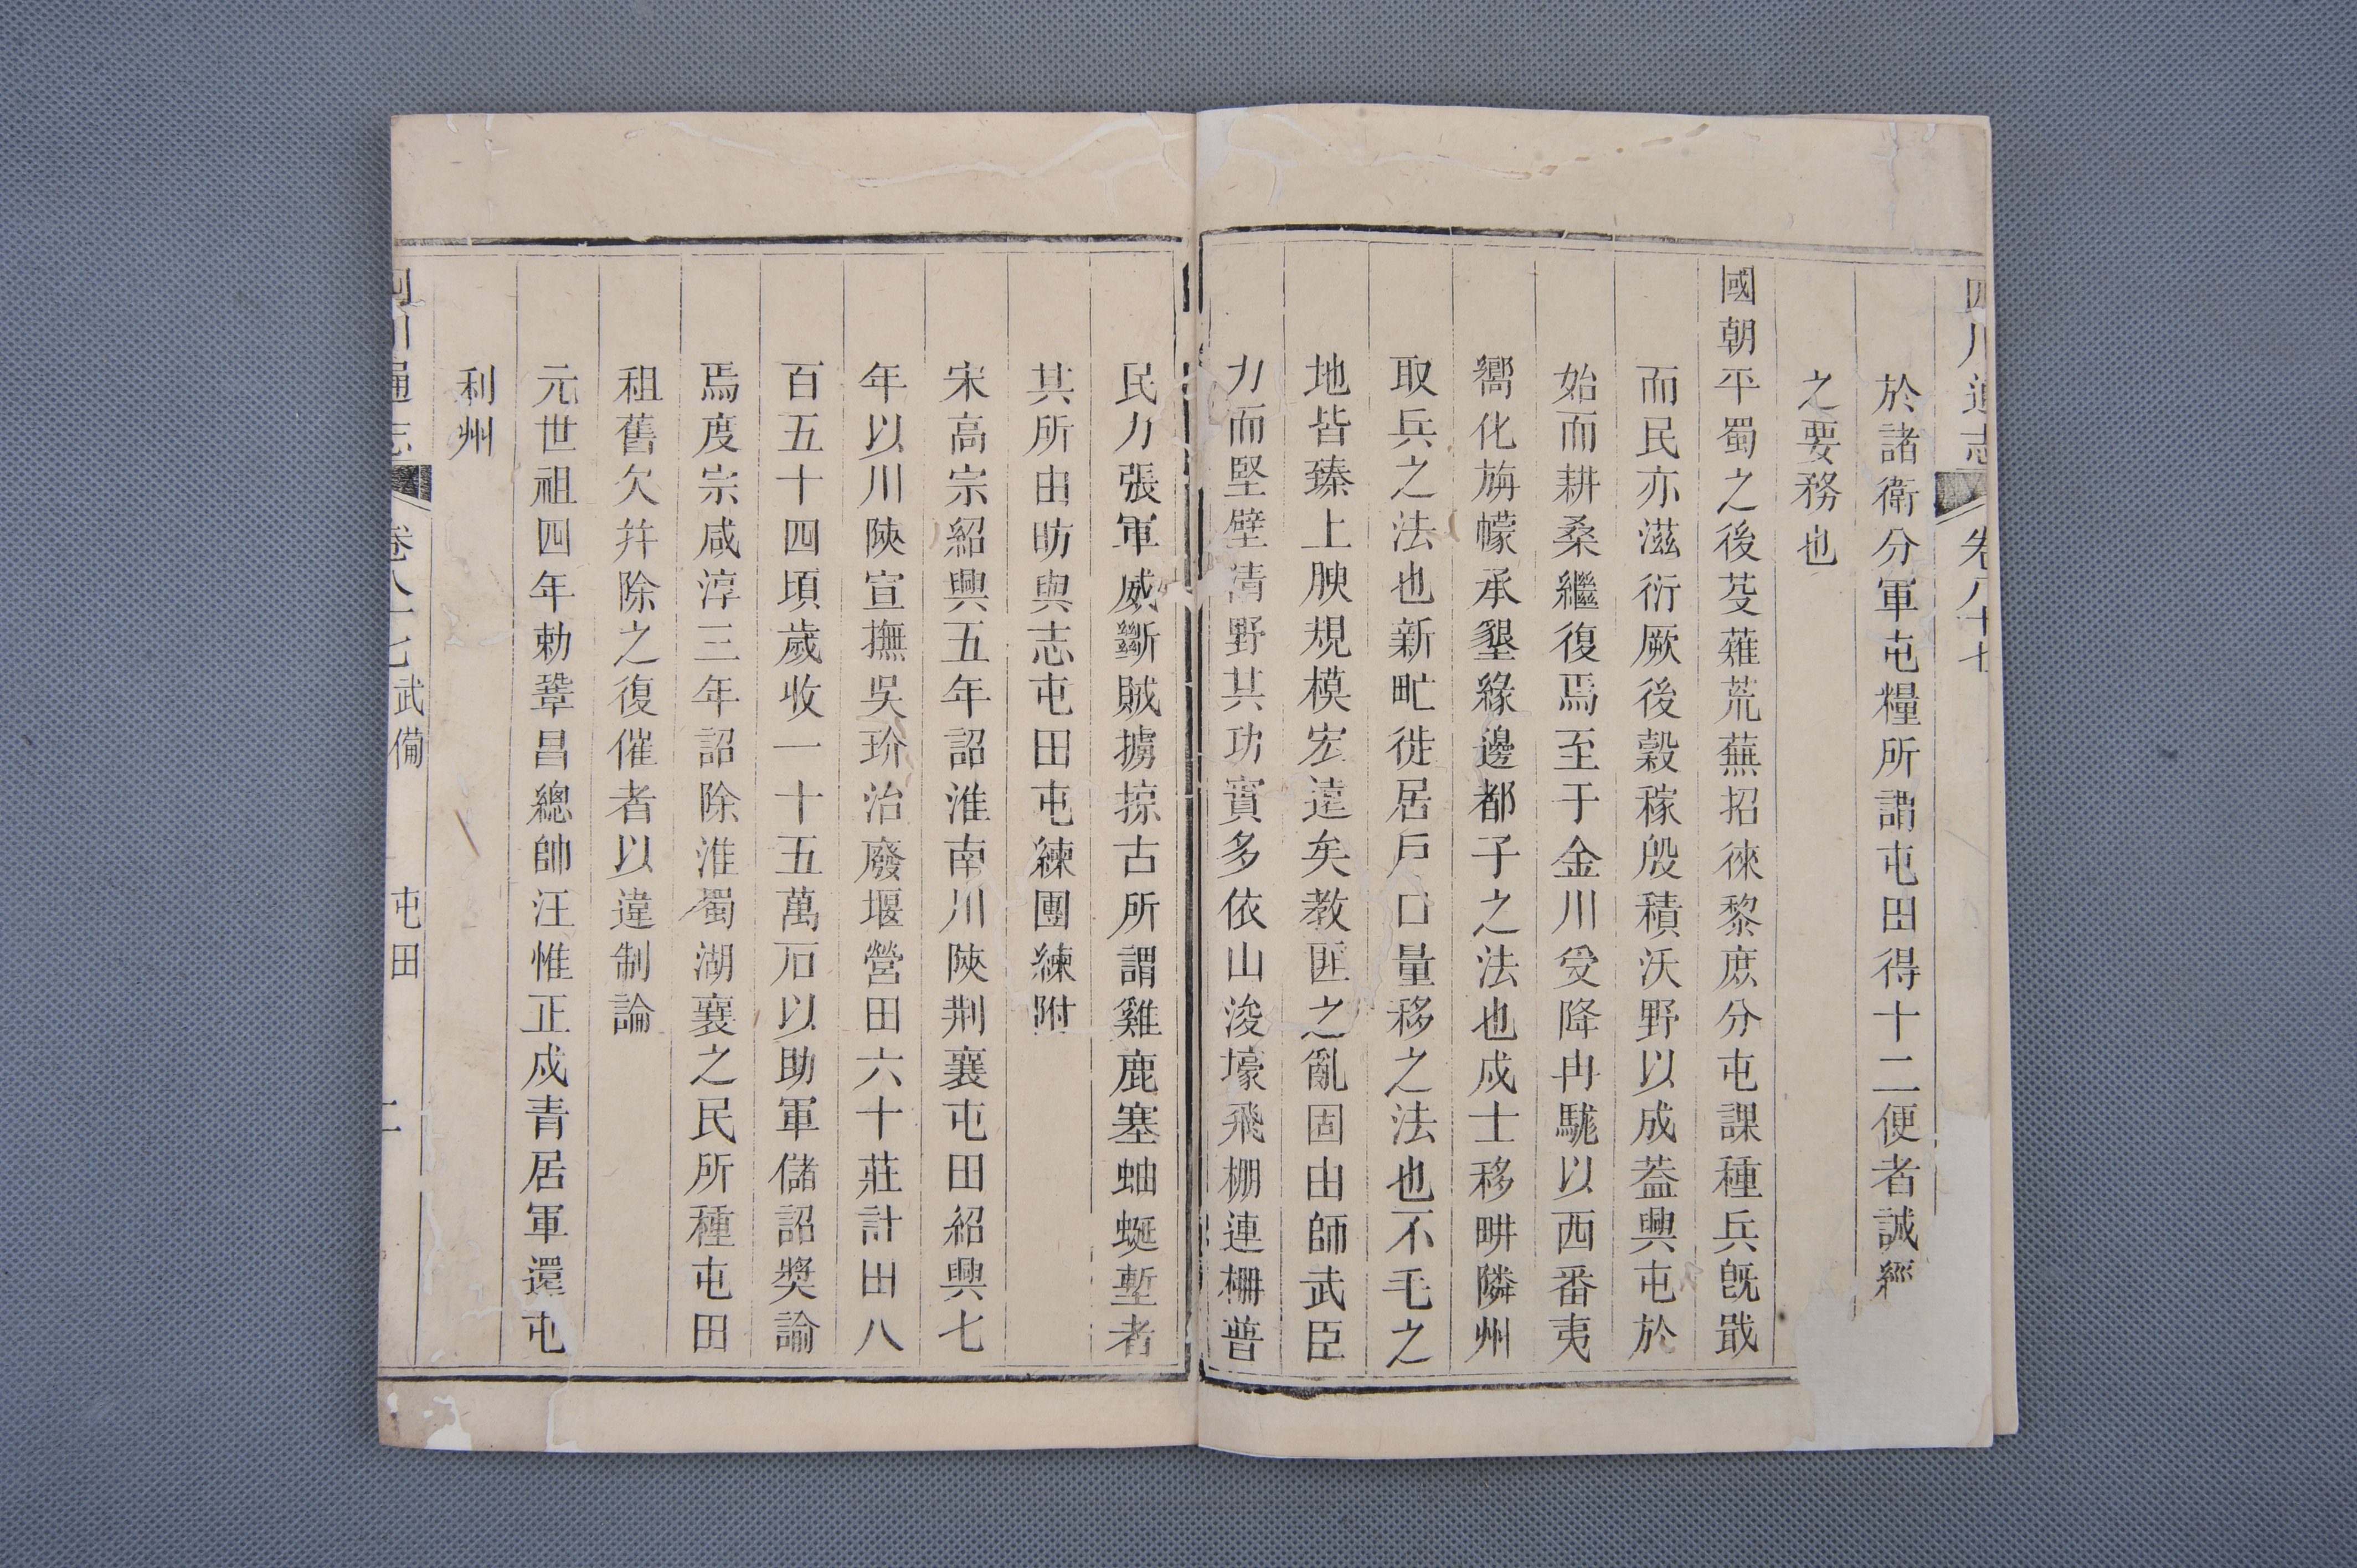 四川通志 卷八十七
於諸衛分軍屯糧所謂屯田得十二便者誠經
之要務也
國朝平蜀之後芟薙荒蕪招徠黎庶分屯課種兵旣戢
而民亦滋衍厥後穀稼殷積沃野以成葢興屯於
始而耕桑繼復焉至于金川受降冉駹以西番夷
嚮化旃幪承墾緣邊都子之法也戍士移畊隣州
取兵之法也新甿徙居戸口量移之法也不毛之
地皆臻上腴規模宏遠矣教匪之亂固由師武臣
力而堅壁清野其功實多依山浚壕飛棚連柵普
民力張軍威斷賊擄掠古所謂雞鹿塞蚰蜒塹者
其所由昉與志屯田屯練團練附
宋高宗紹興五年詔淮南川陝荆襄屯田紹興七
年以川陝宣撫吳玠治廢堰營田六十莊計田八
百五十四頃歲收一十五萬石以助軍儲詔奬諭
焉度宗咸淳三年詔除淮蜀湖襄之民所種屯田
祖舊欠并除之復催者以違制論
元世祖四年勅鞏昌總帥汪惟正戍青居軍還屯
利州
四川通志 卷八十七 武備 屯田 二